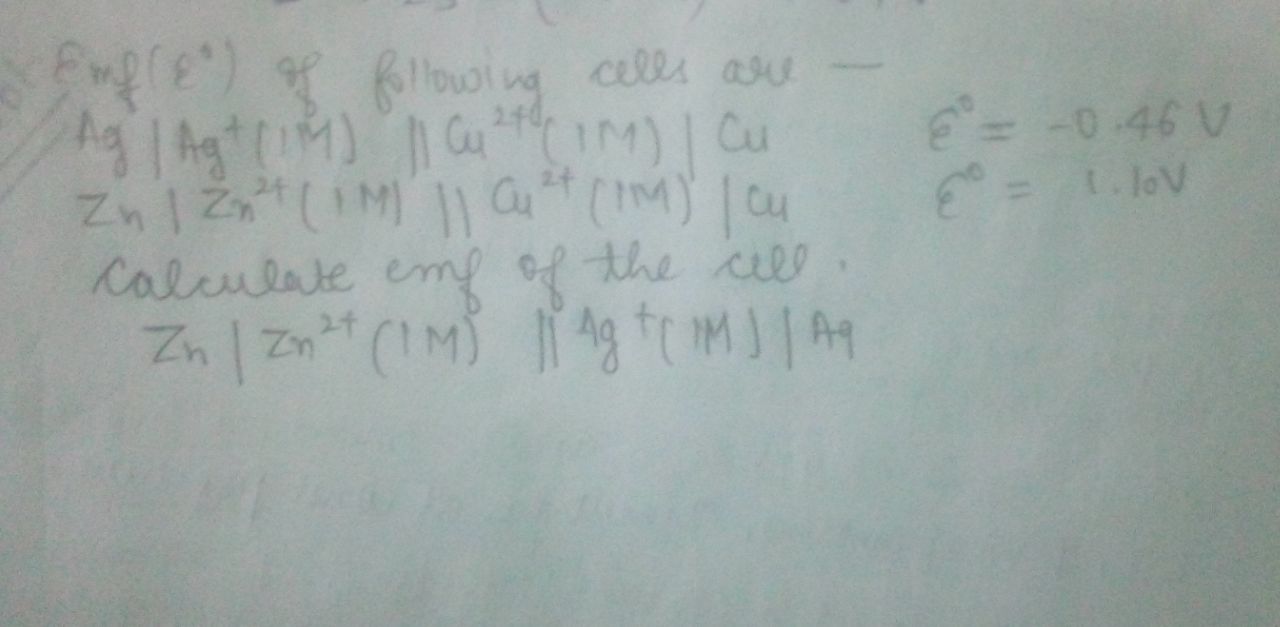 Emf(ε°) of following cells are —
Ag | Ag⁺(1M) || Cu²⁺(1M) | Cu ε° = -0.46 V
Zn | Zn²⁺(1M) || Cu²⁺(1M) | Cu ε° = 1.10V
Calculate emf of the cell.
Zn | Zn²⁺(1M) || Ag⁺(1M) | Ag